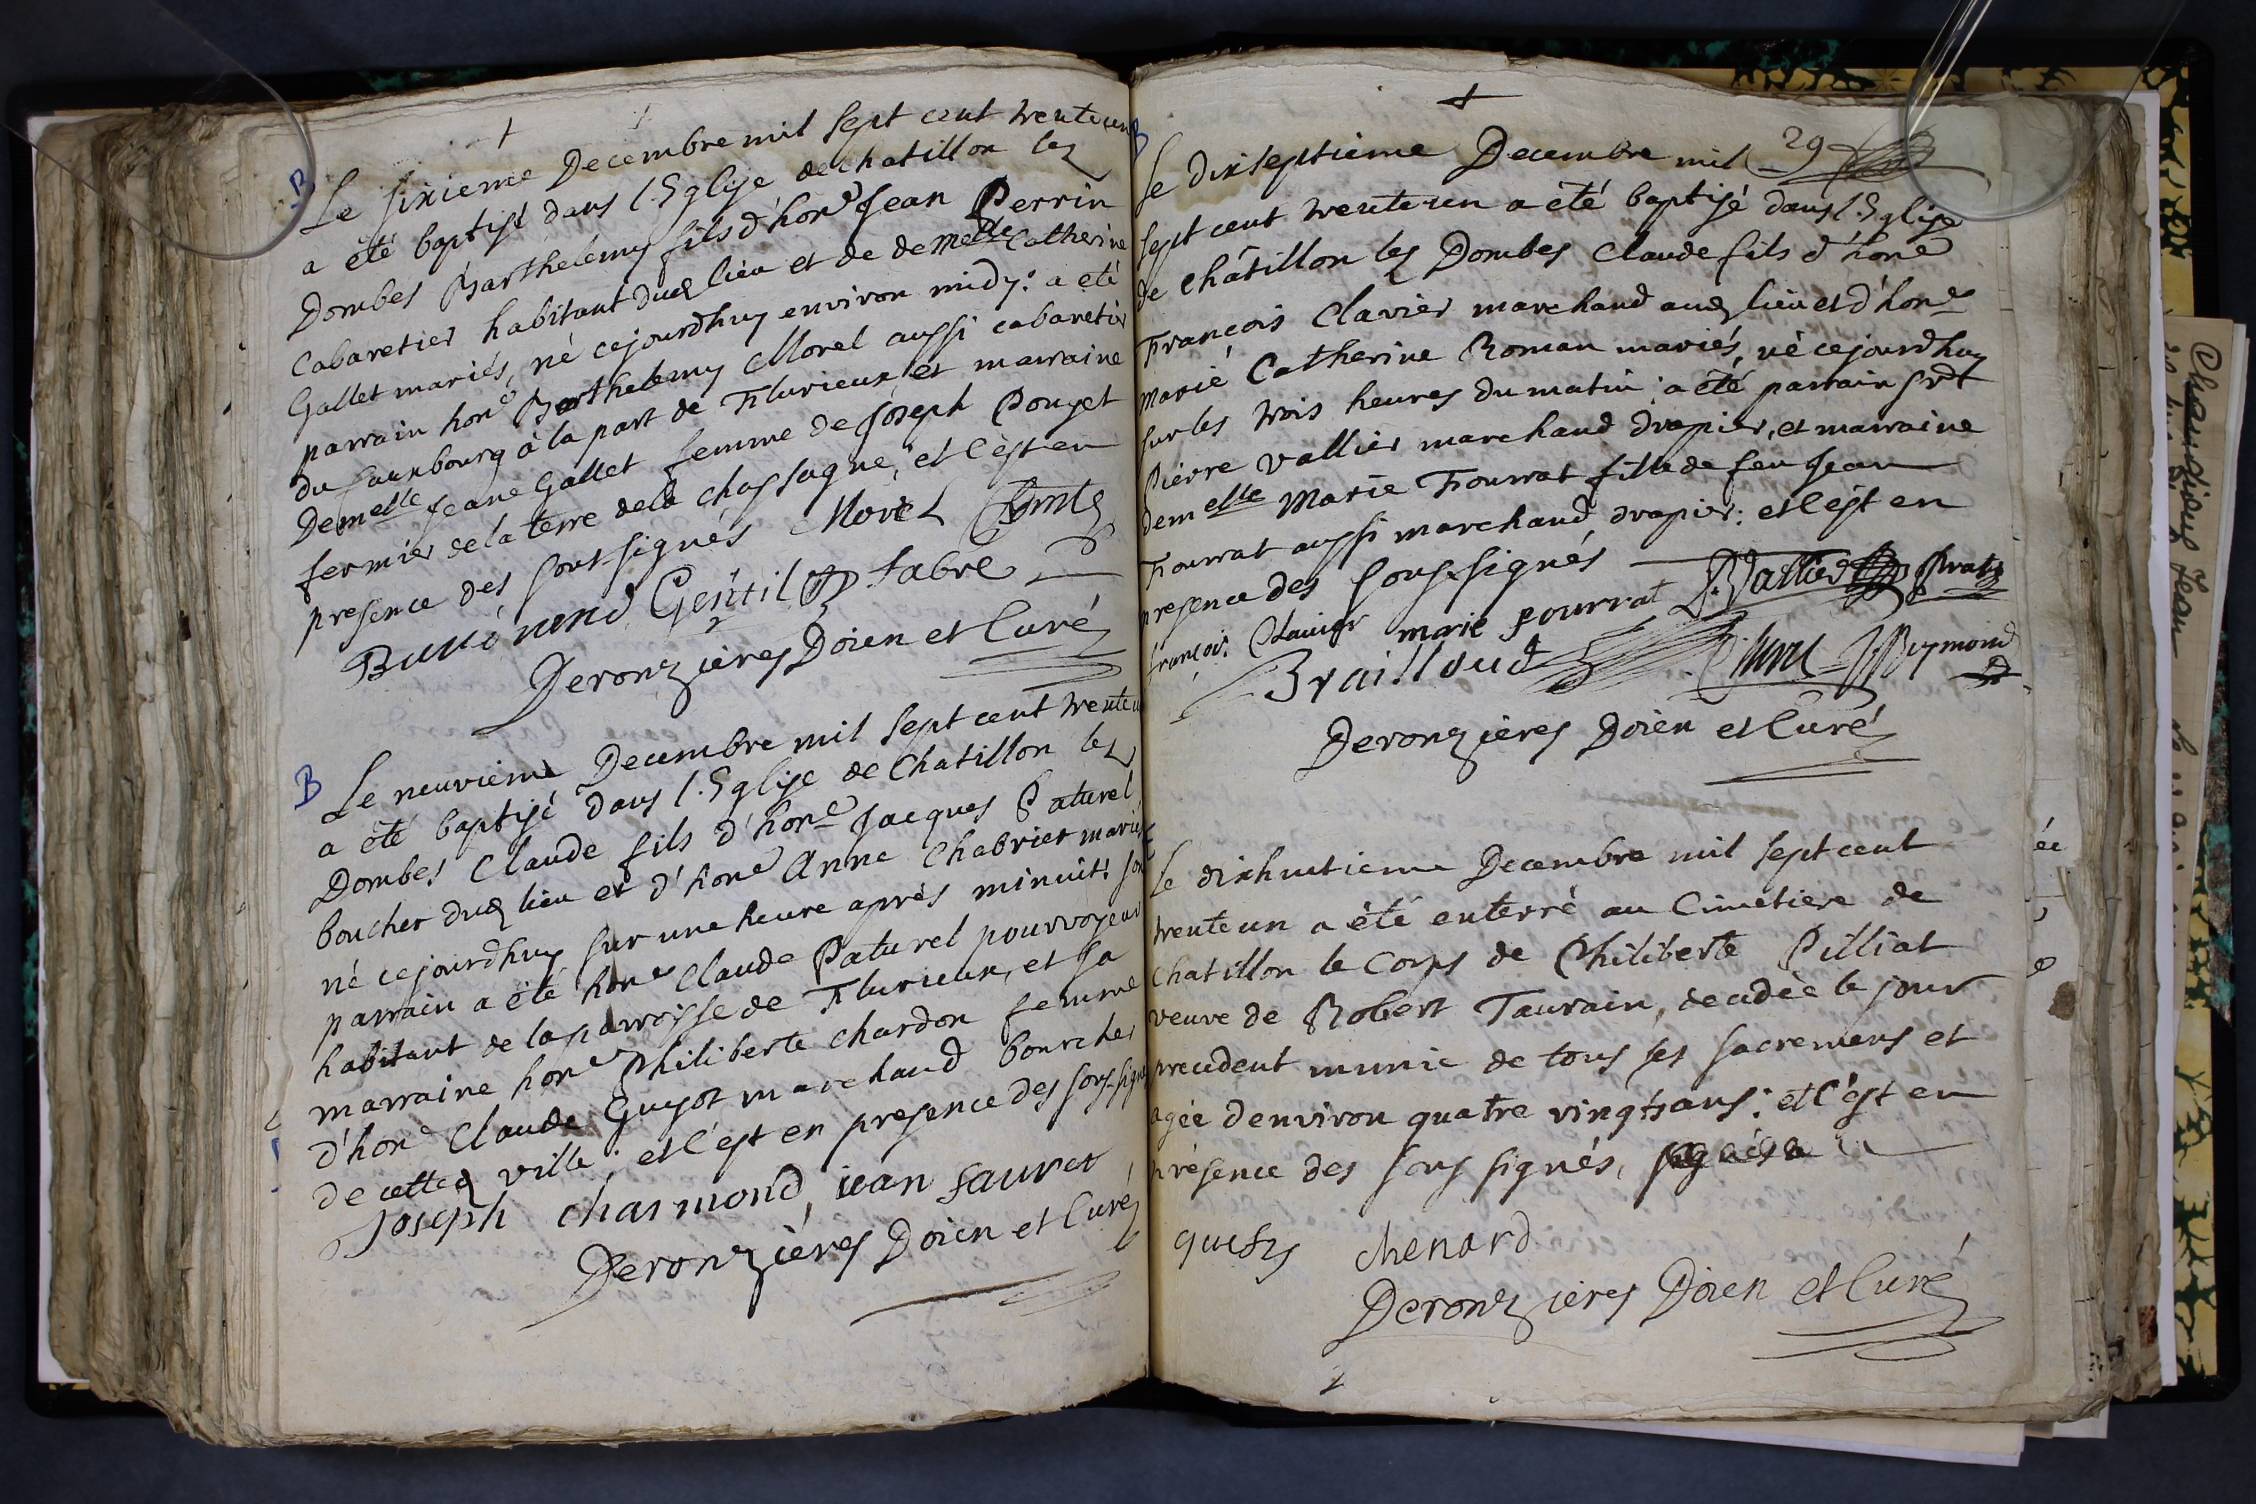 B
Le sixieme Decembre mil sept cent trente un
a été baptisé dans l'Eglise de Chatillon les
Dombes Barthelemy fils d'honê Jean Perrin
Cabaretier habitant dud lieu et de demelle Catherine
Gallet mariés, né cejourdhuy environ midy: a eté
parrain honê Barthelemy Morel aussi cabaretier
du fauxbourg à la part de Flurieux et marraine
Demelle Jeane Gallet femme de Joseph Pouget
fermier de la terre dela chassagne, et c'est en
presence des sousignés Morel
Gentil fabre
Deronzières Doien et Curé
B
Le neuvieme Decembre mil sept cent trente u
a été baptisé dans l'Eglise de Chatillon les
Dombes Claude fils d'honê Jacques Paturel
boucher dud lieu et d'honê Anne Chabrier mariés
né cejourdhuy sur une heure après minuit: son
parrain a été honê Claude Paturel pourvoyeur
habitant de la parroisse de Flurieux, et sa
marraine honê Philiberte Chardon femme
d'honê Claude Guyot marchand bourcher
de cetted ville; et c'est en presence des sous-signés
Joseph Charmond, jean Sauret
Deronzières Doien et Curé
B
29
Le dixseptieme Decembre mil
sept cent trente un a été baptisé dans l'Eglise
de Châtillon les Dombes Claude fils d'honê
François Clavier marchand aud lieu et d'honê
Marie Catherine Roman mariés, né cejourdhuy
sur les trois heures du matin: a été parrain sr
Pierre Vallier marchand drapier, et marraine
demelle Marie Fourrat fille de feu Jean
Fourrat aussi marchand drapier: et c'est en
presence des sous-signés P. Vallier
françois Clavier marie fourrat
Brailloud Reymond
Deronzières Doien et Curé
Le dixhuitieme Decembre mil sept cent
trente un a été enterré au Cimetiere de
Chatillon le Corps de Philiberte Pilliat
veuve de Robert Taurain, decedée le jour
precedent munie de tous ses sacremens et
agée d'environ quatre vingts ans; et c'est en
présence des sous signés,
Chenard
Deronzières Doien et Curé
Chandieu Jean